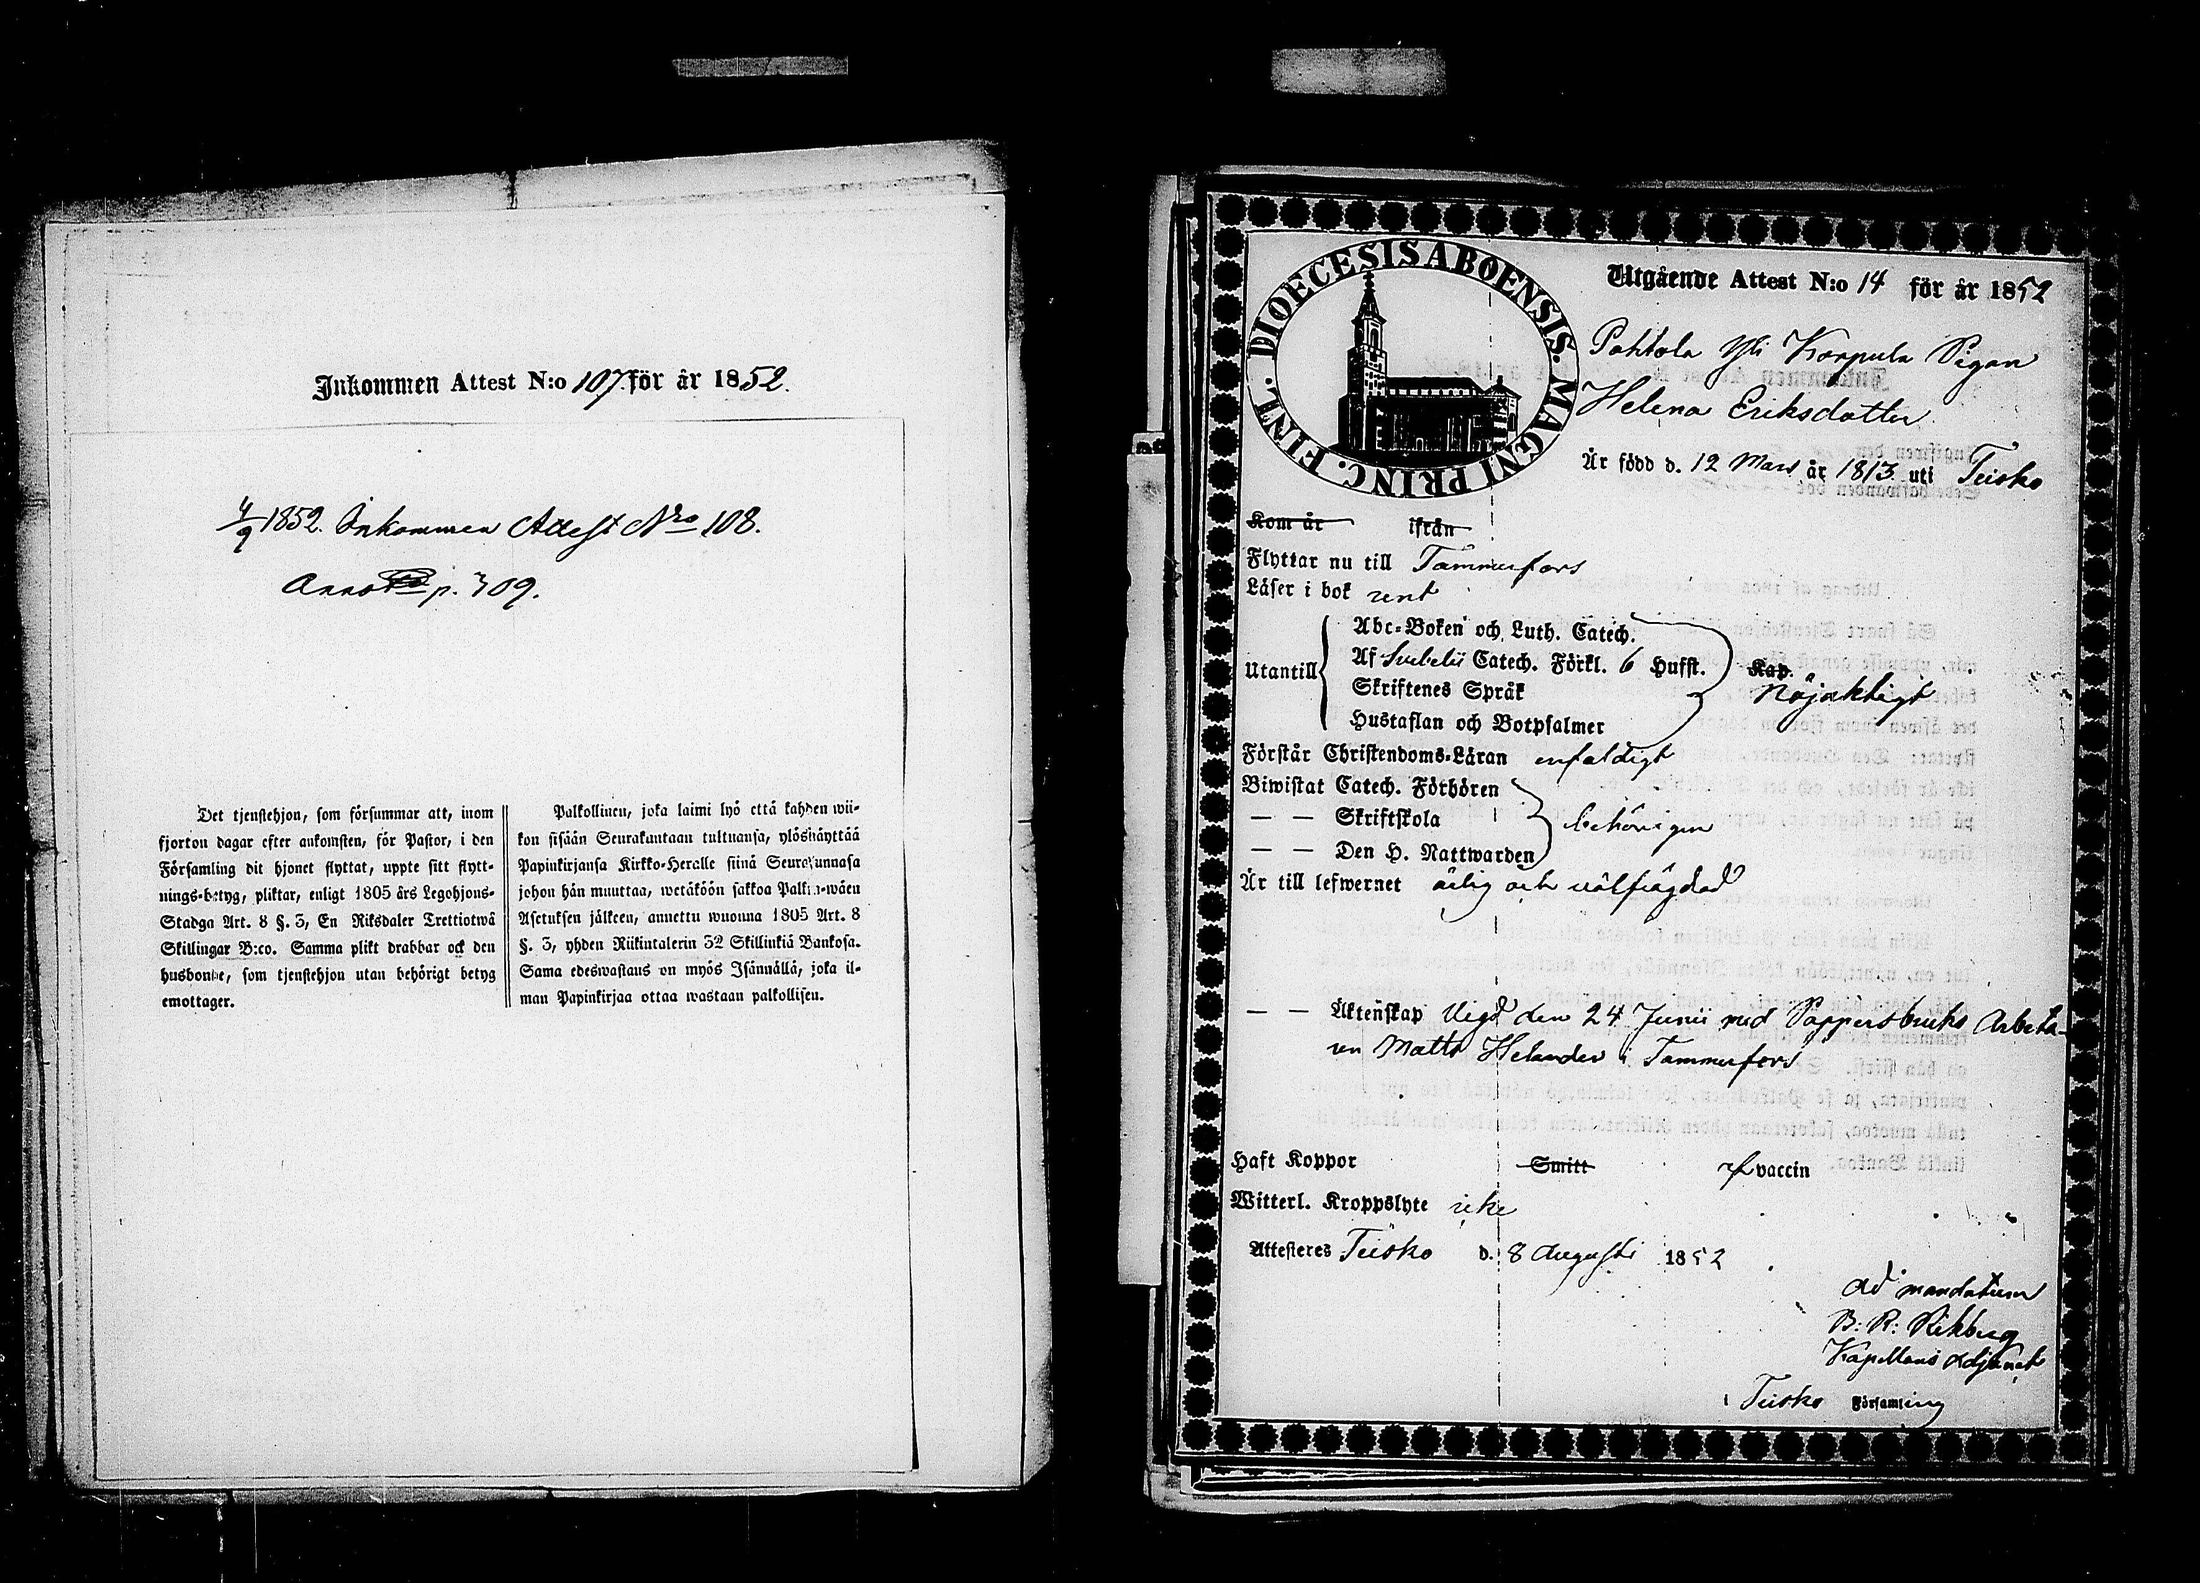 Inkommen Attest N:o 107 för år 1852.
4/9 1852. Inkommen Attest Nro 108.
p. 309.
Det tjenstehjon, som försummar att, inom
fjorton dagar efter ankomsten, för Pastor, i den
Församling dit hjonet flyttat, uppte sitt flytt-
nings-betyg, pliktar, enligt 1805 års Legohjons-
Stadga Art. 8 §. 3, En Riksdaler Trettiotwå
Skillingar B:co. Samma plikt drabbar ock den
husbonde, som tjenstehjon utan behörigt betyg
emottager.
Palkollinen, joka laimi lyö että kahden wii-
kon sisään Seurakuntaan tultuansa, ylöshäyttää
Papinkirjansa Kirkko-Heralle siinä Seurakunnasa
johon hän muuttaa, wetäköön sakkoa Palk wäen
Asetuksen jälkeen, annettu wuonna 1805 Art. 8
§. 3, yhden Riikintalerin 32 Skillinkiä Bankosa.
Sama edeswastaus on myös Isännällä, joka il-
man Papinkirjaa ottaa wastaan palkollisen.
DIOECESIS ABOENSIS. MAGNI PRINC. FINL.
Utgående Attest N:o 14 för år 1852
Pohtola Yli Korpula Pigan
Helena Eriksdotter
Är född d. 12 Mars år 1813 uti Teisko
Kom år ifrån
Flyttar nu till Tammerfors
Läser i bok rent
Utantill
Abc-Boken och Luth. Catech.
Af Svebelii Catech. Förkl. 6 Hufst. Kap.
Skriftenes Språk
Nöjaktigt
Hustaflan och Botpsalmer
Förstår Christendoms-Läran enfaldigt
Biwistat Catech. Förhören
— — Skriftskola behörigen
— — Den H. Nattwarden
Är till lefwernet ärlig och välfrägdad
— — Äktenskap Vigd den 24 Junii med Pappersbruks Arbeta-
ren Matts Helander i Tammerfors
Haft Koppor Smitt vaccin
Witterl. Kroppslyte icke
Attesteres Teisko d. 8 Augusti 1852
Ad mandatum
B: R: Rikberg
Kapellans Adjunct
i Teisko Församling